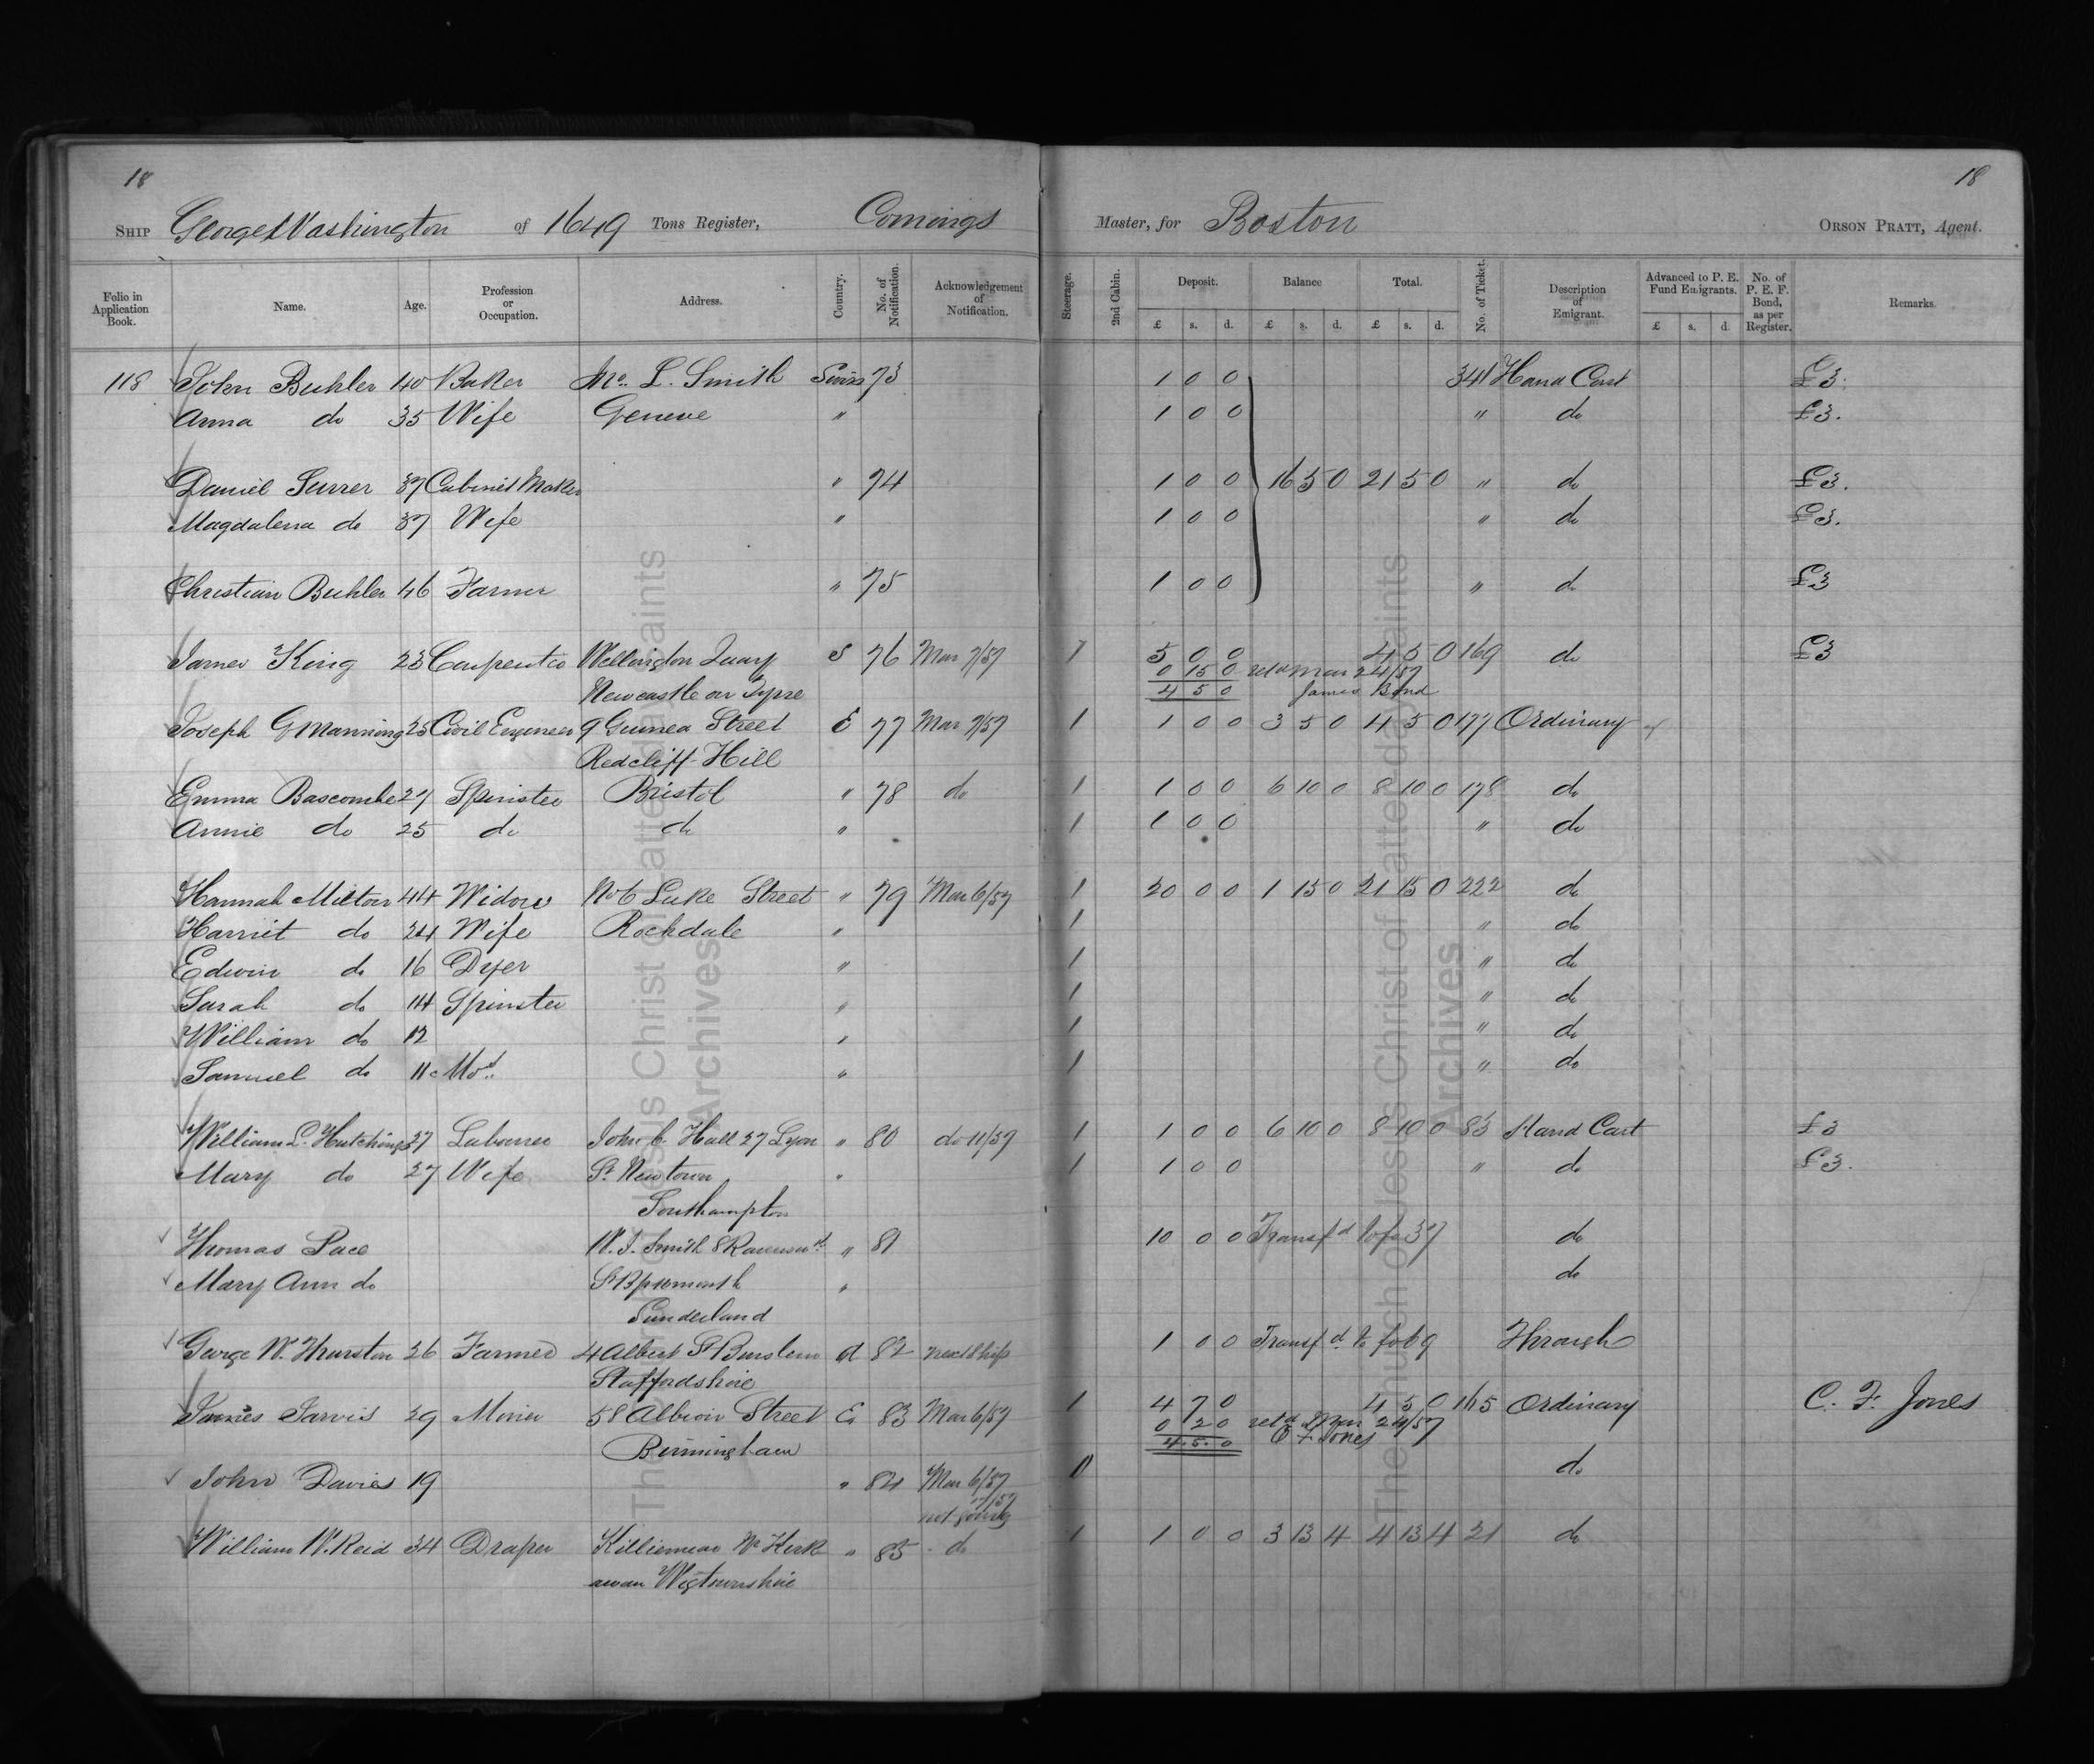 18 18
SHIP George Washington of 1649 Tons Register, Comings Master, for Boston ORSON PRATT, Agent.
Folio in Application Book. Name. Age. Profession or Occupation. Address. Country. No. of Notification. Acknowledgement of Notification. Steerage. 2nd Cabin. Deposit. Balance Total. No. of Ticket. Description of Emigrant. Advanced to P. E. Fund Emigrants. No. of P. E. F. Bond, as per Register. Remarks.
£ s. d. £ s. d. £ s. d. £ s. d.
118 John Buhler 40 Baker Mr. L. Smith Swiss 73 1 0 0 341 Hand Cart £3.
Anna do 35 Wife Geneve " 1 0 0 " do £3.
Daniel Surrer 37 Cabinet Maker " 74 1 0 0 16 5 0 21 5 0 " do £3.
Magdalena do 37 Wife " 1 0 0 " do £3.
Christian Buhler 46 Farmer " 75 1 0 0 " do £3
James King 23 Carpenter Wellington Quay S 76 Mar 7/57 1 5 0 0 4 5 0 169 do £3
0 15 0 retd Mar 24/57
Newcastle on Tyne 4 5 0 James Bond
Joseph G Manning 25 Civil Engineer 9 Guinea Street E 77 Mar 7/57 1 1 0 0 3 5 0 4 5 0 177 Ordinary
Redcliff Hill
Emma Bascombe 27 Spinster Bristol " 78 do 1 1 0 0 6 10 0 8 10 0 178 do
Annie do 25 do do " 1 1 0 0 " do
Hannah Milton 44 Widow No 6 Lake Street " 79 Mar 6/57 1 20 0 0 1 15 0 21 15 0 222 do
Harriet do 24 Wife Rochdale " 1 " do
Edwin do 16 Dyer " 1 " do
Sarah do 14 Spinster " 1 " do
William do 12 " 1 " do
Samuel do 11 Mos. " 1 " do
William L. Hutchings 27 Labourer John C. Hall 27 Lyon " 80 do 11/57 1 1 0 0 6 10 0 8 10 0 83 Hand Cart £3
Mary do 27 Wife St. Newtown " 1 1 0 0 " do £3.
Southampton
Thomas Pace W. J. Smith 8 " 81 10 0 0 Transfd to fo 37 do
Mary Ann do " do
Sunderland
George W. Thurston 26 Farmer 4 Albert St Burslem d 82 next Ship 1 0 0 Transfd. to fo 69 Through
Staffordshire
James Jarvis 29 Miner 58 Albion Street E. 83 Mar 6/57 1 4 7 0 4 5 0 165 Ordinary C. F. Jones
0 2 0 retd Mar 24/57
Birmingham 4 5 0 C F Jones
John Davies 19 " 84 Mar 6/57 0 do
7/57
not going
William W. Reid 34 Draper Killiemore Nr Kirk " 85 do 1 1 0 0 3 13 4 4 13 4 21 do
cowan Wigtownshire
The Church of Jesus Christ of Latter-day Saints
Archives
The Church of Jesus Christ of Latter-day Saints
Archives